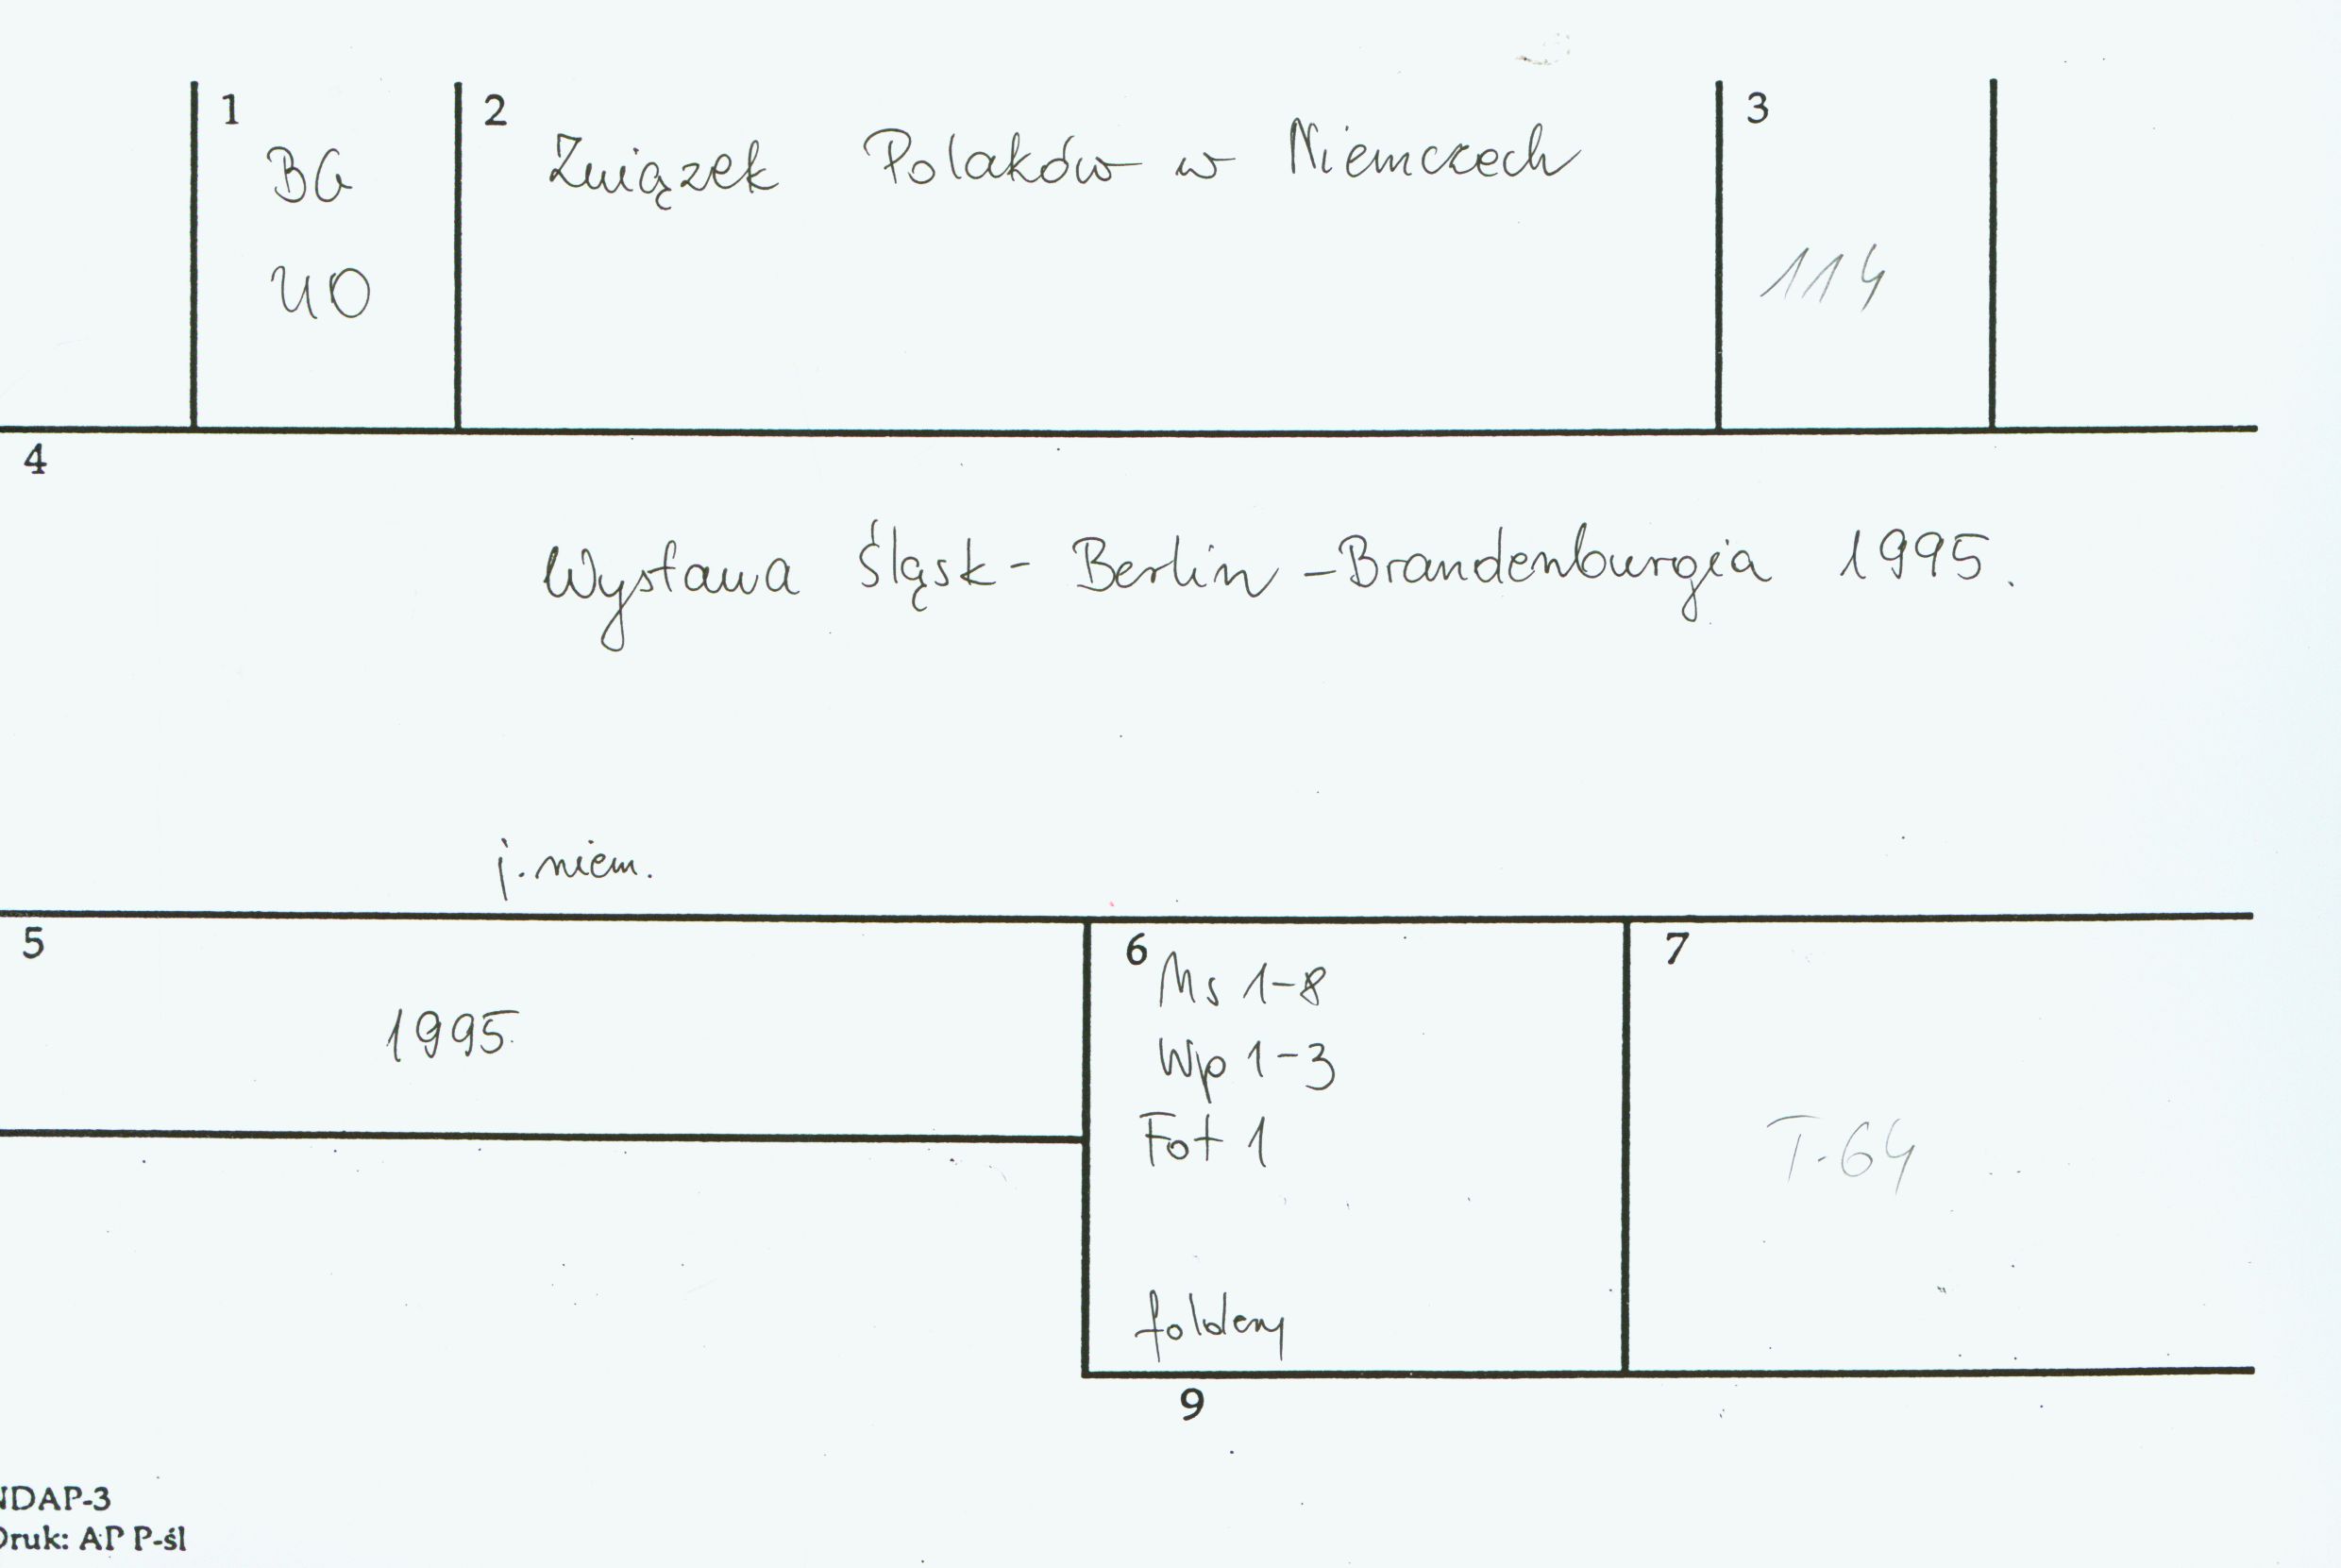 1
BG
UO
2
Związek Polaków w Niemczech
3
114
4
Wystawa Śląsk - Berlin - Brandenburgia 1995.
j. niem.
5
1995
6
Ms 1-8
Wp 1-3
Fot 1
foldery
7
T-64
9
NDAP-3
Druk: AP P-śl